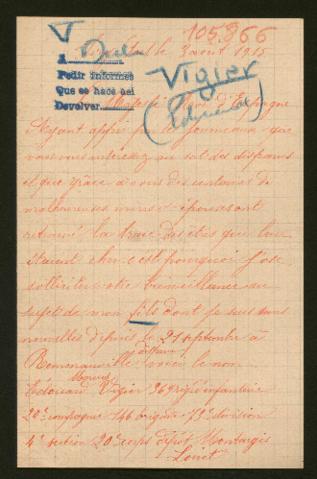 105.866
V
3 aout 1915
A
Pedir informes
Que se hace asi
Devolver
Vigier
Majesté Roi d'Espagne
Ayant appris par les journaux que
vous vous intéressez au sort des disparus
et que grâce à vous des centaines de
malheureuses mères et épouses ont
retrouvé la trace des êtres que leur
étaient cher c'est pourquoi j'ose
solliciter votre bienveillance au
sujet de mon fils dont je suis sans
nouvelles depuis le 21 septembre à
disparu
voici le nom
Vigier 369 régt infanterie
20e compagnie 146 brigade 73e division
4e section 20e corps dépôt Montargis
Loiret